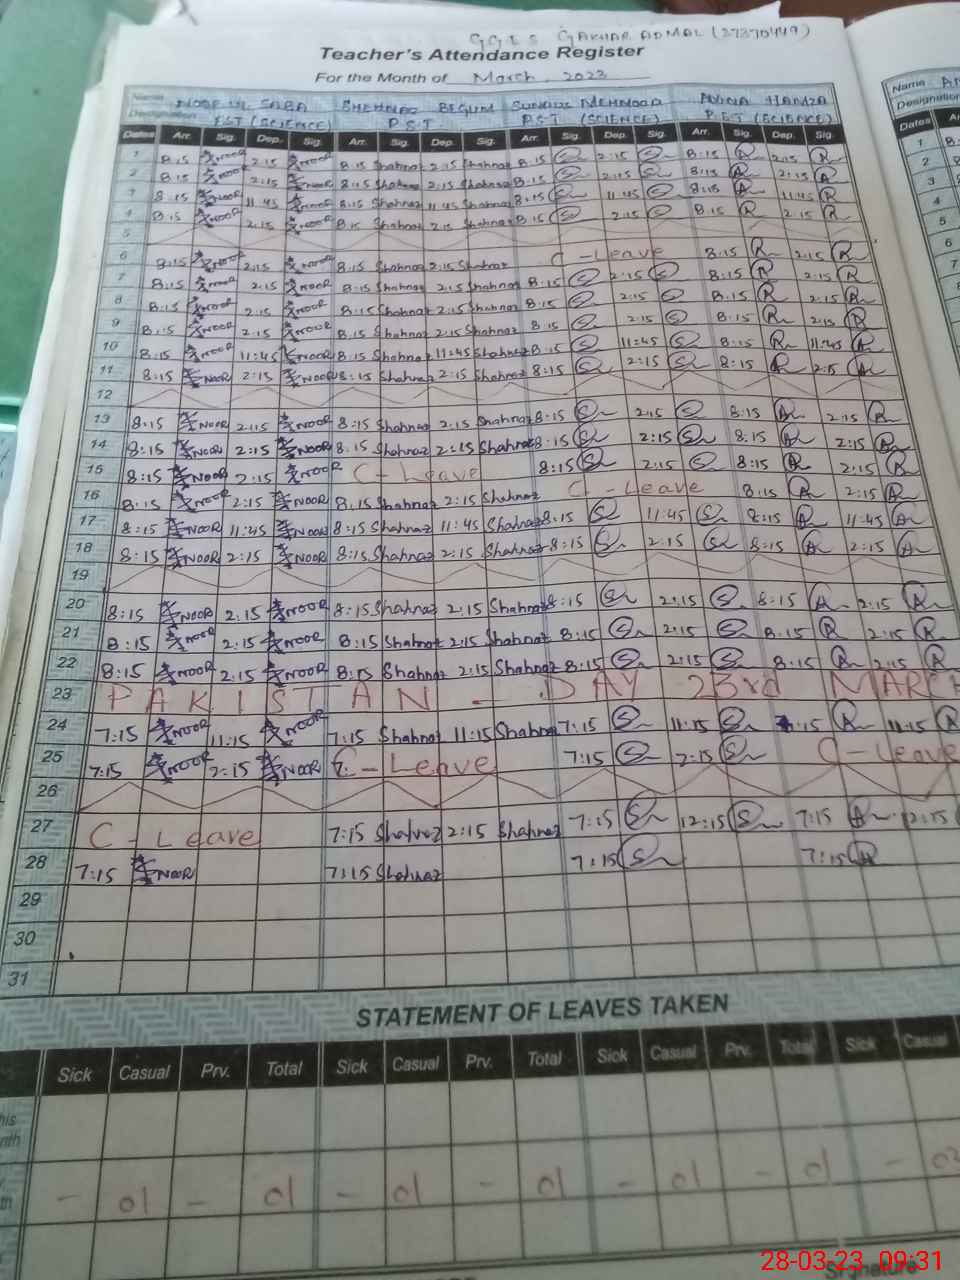 GGES GAKHAR ADMAL (37370449)
Teacher's Attendance Register
For the Month of March, 2023
Name NOOR UL SABA SHEHNAZ BEGUM MEHMOOD HAMZA Name
Designation EST (SCIENCE) P.S.T P.S.T (SCIENCE) P.S.T (SCIENCE) Designation
Dates Arr. Sig. Dep. Sig. Arr. Sig. Dep. Sig. Arr. Sig. Dep. Sig. Arr. Sig. Dep. Sig. Dates
1 8:15 NOOR 2:15 NOOR 8:15 Shahnaz 2:15 Shahnaz 8:15 2:15 8:15 2:15 1
2 8:15 NOOR 2:15 NOOR 8:15 Shahnaz 2:15 Shahnaz 8:15 2:15 8:15 2:15 2
3 8:15 NOOR 11:45 NOOR 8:15 Shahnaz 11:45 Shahnaz 8:15 11:45 8:15 11:45 3
4 8:15 NOOR 2:15 NOOR 8:15 Shahnaz 2:15 Shahnaz 8:15 2:15 8:15 2:15 4
5 5
6 8:15 NOOR 2:15 NOOR 8:15 Shahnaz 2:15 Shahnaz C-Leave 8:15 2:15 6
7 8:15 NOOR 2:15 NOOR 8:15 Shahnaz 2:15 Shahnaz 8:15 2:15 8:15 2:15 7
8 8:15 NOOR 2:15 NOOR 8:15 Shahnaz 2:15 Shahnaz 8:15 2:15 8:15 2:15
9 8:15 NOOR 2:15 NOOR 8:15 Shahnaz 2:15 Shahnaz 8:15 2:15 8:15 2:15
10 8:15 NOOR 11:45 NOOR 8:15 Shahnaz 11:45 Shahnaz 8:15 11:45 8:15 11:45
11 8:15 NOOR 2:15 NOOR 8:15 Shahnaz 2:15 Shahnaz 8:15 2:15 8:15 2:15
12
13 8:15 NOOR 2:15 NOOR 8:15 Shahnaz 2:15 Shahnaz 8:15 2:15 8:15 2:15
14 8:15 NOOR 2:15 NOOR 8:15 Shahnaz 2:15 Shahnaz 8:15 2:15 8:15 2:15
15 8:15 NOOR 2:15 NOOR C-Leave 8:15 2:15 8:15 2:15
16 8:15 NOOR 2:15 NOOR 8:15 Shahnaz 2:15 Shahnaz C-Leave 8:15 2:15
17 8:15 NOOR 11:45 NOOR 8:15 Shahnaz 11:45 Shahnaz 8:15 11:45 8:15 11:45
18 8:15 NOOR 2:15 NOOR 8:15 Shahnaz 2:15 Shahnaz 8:15 2:15 8:15 2:15
19
20 8:15 NOOR 2:15 NOOR 8:15 Shahnaz 2:15 Shahnaz 8:15 2:15 8:15 2:15
21 8:15 NOOR 2:15 NOOR 8:15 Shahnaz 2:15 Shahnaz 8:15 2:15 8:15 2:15
22 8:15 NOOR 2:15 NOOR 8:15 Shahnaz 2:15 Shahnaz 8:15 2:15 8:15 2:15
23 PAKISTAN - DAY 23rd MARCH
24 7:15 NOOR 11:15 NOOR 7:15 Shahnaz 11:15 Shahnaz 7:15 11:15 7:15 11:15
25 7:15 NOOR 2:15 NOOR C-Leave 7:15 2:15 C-Leave
26
27 C-Leave 7:15 Shahnaz 2:15 Shahnaz 7:15 12:15 7:15 2:15
28 7:15 NOOR 7:15 Shahnaz 7:15 7:15
29
30
31
STATEMENT OF LEAVES TAKEN
Sick Casual Prv. Total Sick Casual Prv. Total Sick Casual Prv. Total Sick Casual
- 01 - 01 - 01 - 01 - 01 - 01 - 02
28-03-23 09:31
Signature